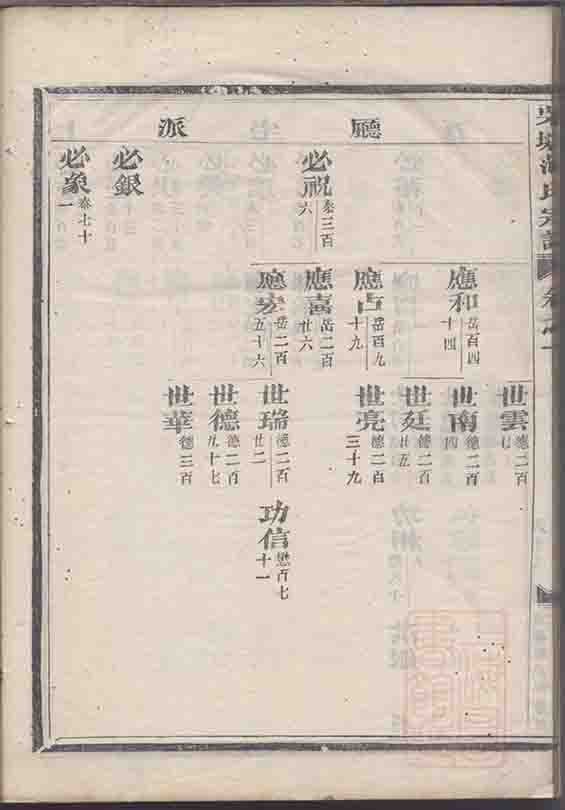 氏宗譜
廳
派
必視
泰三百
六
必銀
必象
泰七十
一
應和
岳百四
十四
應占
岳百九
十九
應喜
岳二百
廿六
應宏
岳二百
五十六
世雲
德二百
世南
德二百
四
世廷
德二百
廿五
世亮
德二百
三十九
世瑞
德二百
廿二
世德
德二百
九十七
世華
德三百
功信
懋百七
十一